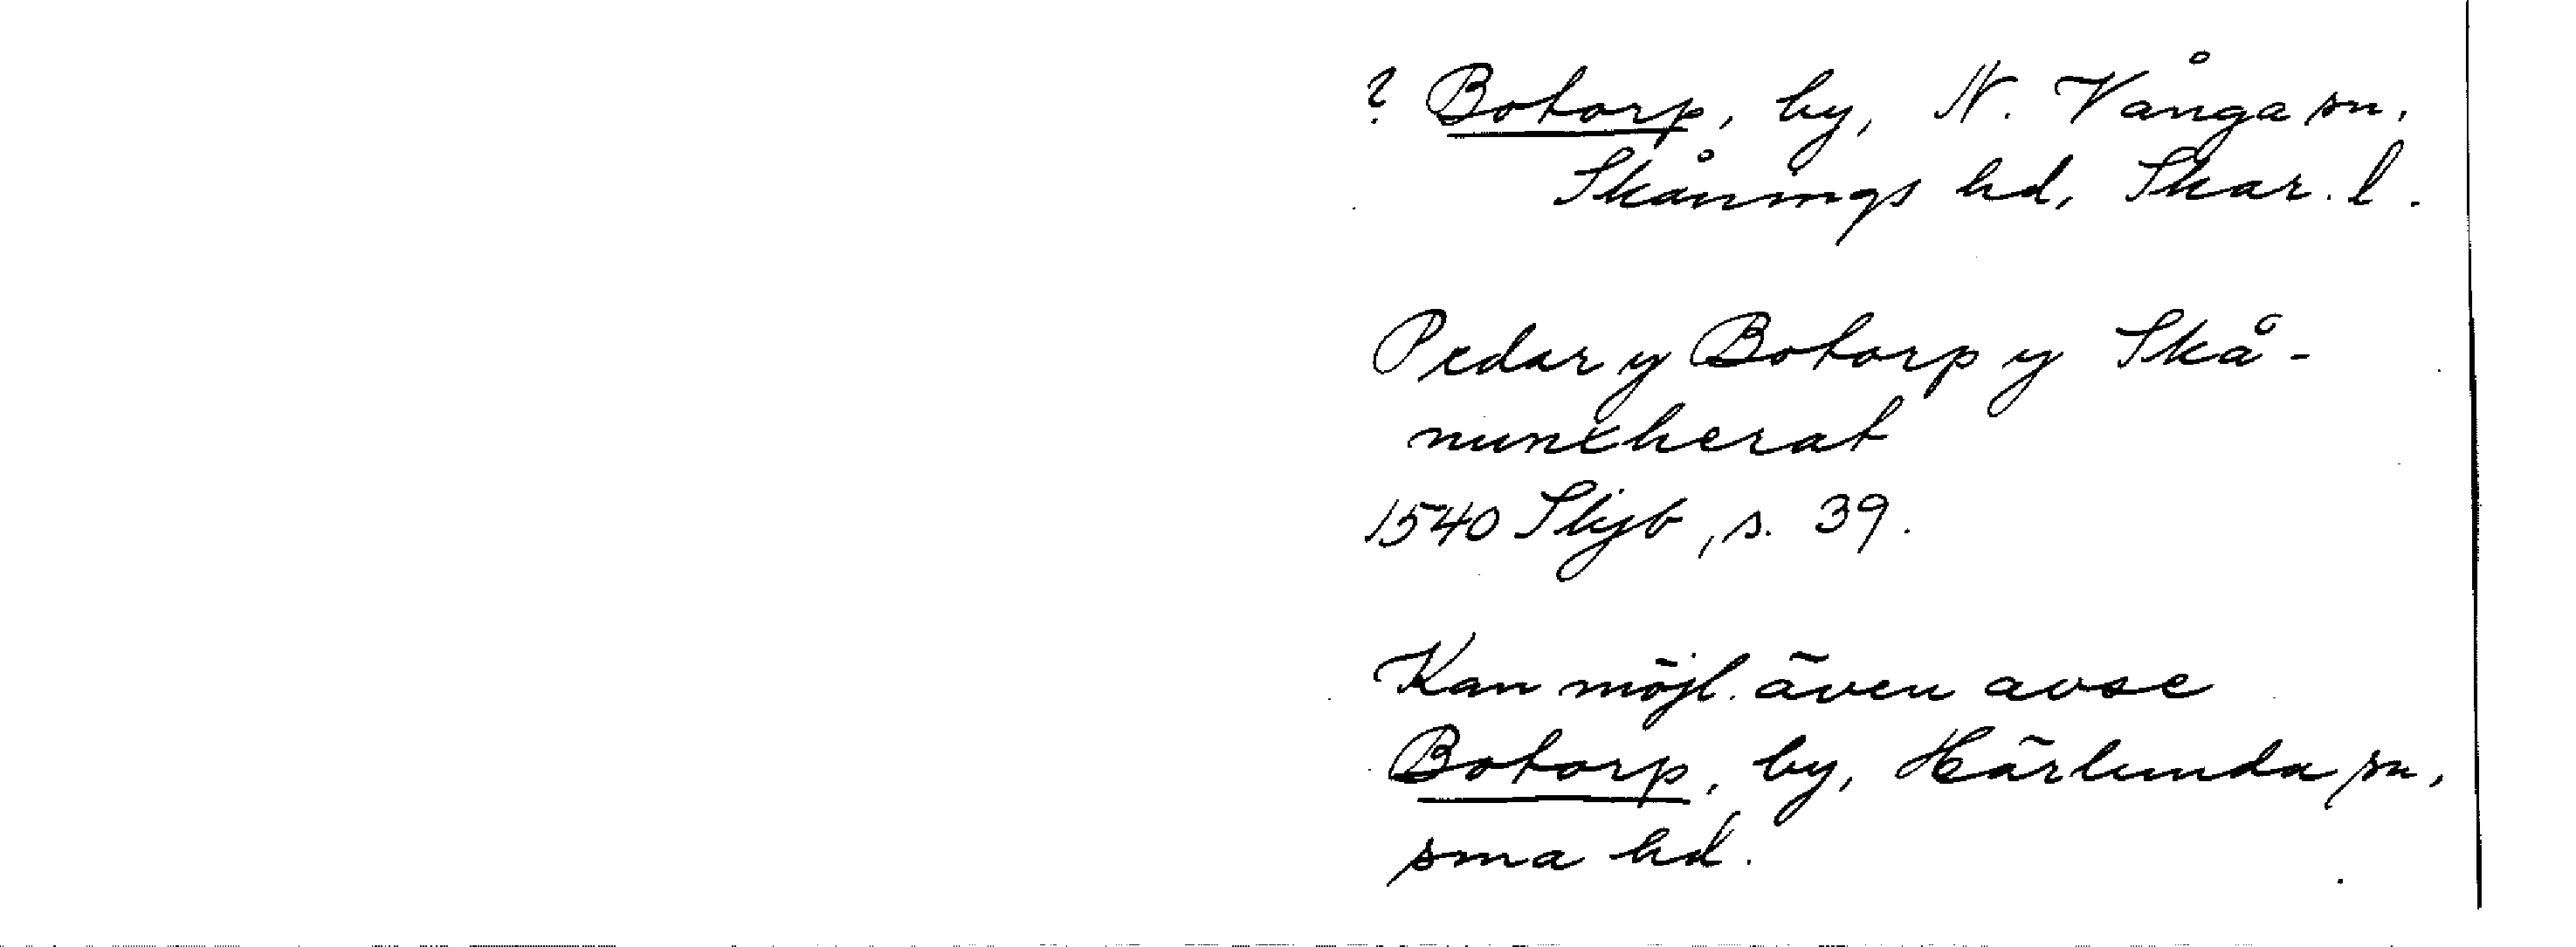 ? Botorp, by, N. Vånga sn,
Skånings hd, Skar. l.
Pedar y Botorp y Skå-
nunxherat
1540 Skjb, s. 39.
Kan möjl. även avse
Botorp, by, Härlunda sn,
sma hd.